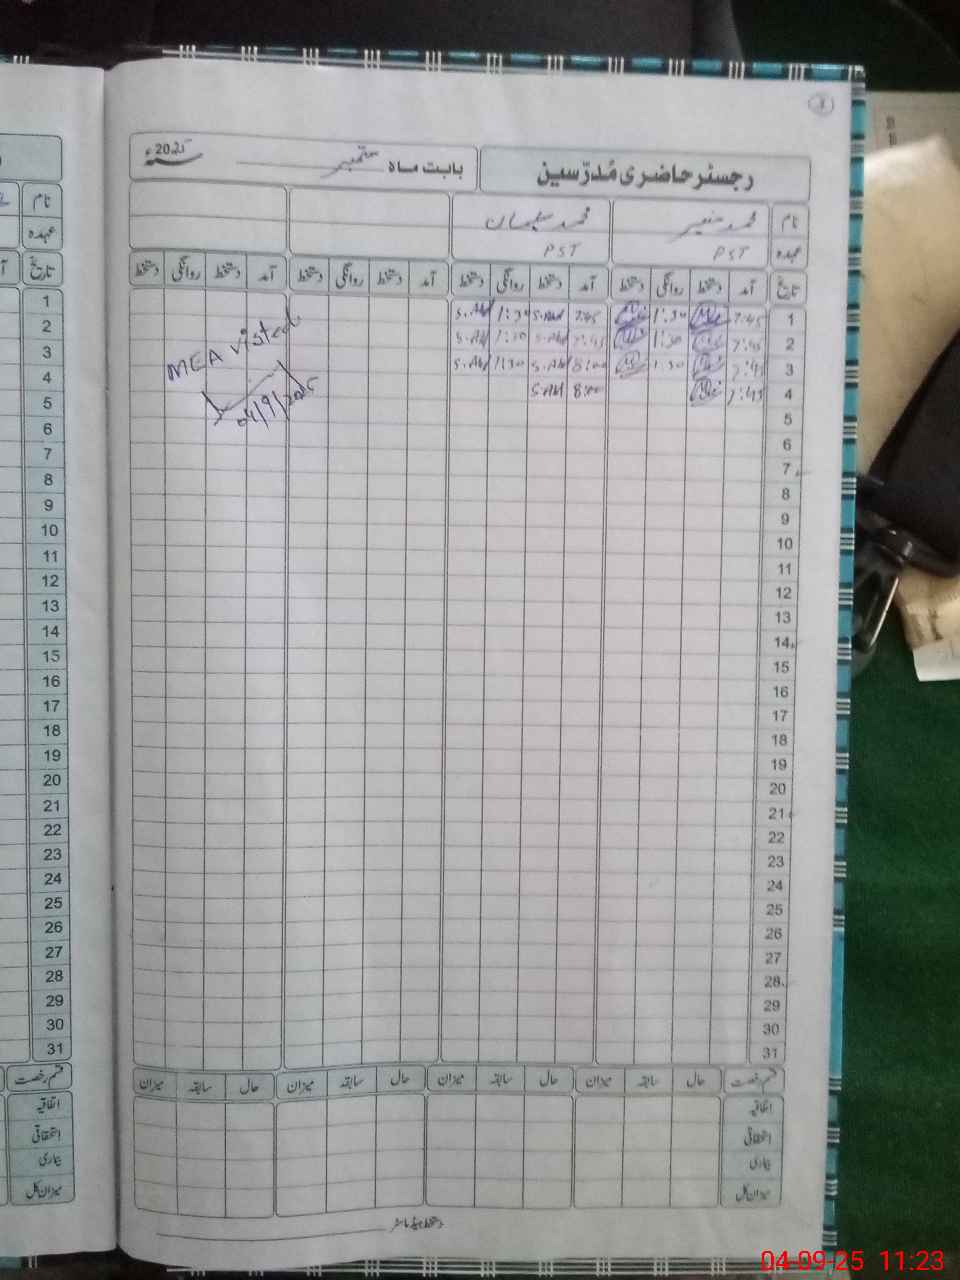 رجسٹر حاضری مُدرّسین
بابت ماہ ستمبر 2025ء
نام محمد منیر محمد سلیمان
عہدہ PST PST
تاریخ آمد دستخط روانگی دستخط آمد دستخط روانگی دستخط آمد دستخط روانگی دستخط آمد دستخط روانگی دستخط
1 7:45 1:30 7:45 S.Ahd 1:30 S.Ahd
2 7:45 1:30 7:45 S.Ahd 1:30 S.Ahd
3 7:45 1:30 8:00 S.Ahd 1:30 S.Ahd
4 7:45 8:00 S.Ahd
MEA visted
04/9/2025
5
6
7
8
9
10
11
12
13
14
15
16
17
18
19
20
21
22
23
24
25
26
27
28
29
30
31
قسم رخصت حال سابقہ میزان حال سابقہ میزان حال سابقہ میزان حال سابقہ میزان
اتفاقیہ
استحقاقی
بیماری
میزان کل
دستخط ہیڈ ماسٹر
نام
عہدہ
تاریخ
1
2
3
4
5
6
7
8
9
10
11
12
13
14
15
16
17
18
19
20
21
22
23
24
25
26
27
28
29
30
31
قسم رخصت
اتفاقیہ
استحقاقی
بیماری
میزان کل
04-09-25 11:23